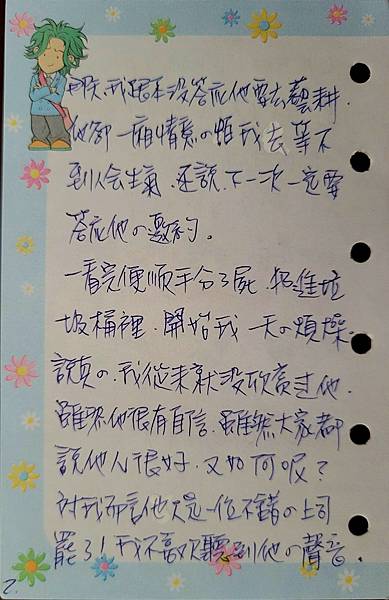 昨天我跟本沒答應他要去藝耕.
他卻一廂情意の跑我去等不
到人会生氣.还說.下一次一定要
答應他の邀約。
一看完便順手分了屍.招進垃
圾桶裡.開始我一天の煩燥.
說真の.我從來就沒欣賞过他.
雖然他很有自信.雖然大家都
說他人很好.又如何呢?
对我而言他只是一位不錯の上司
罷了!我不喜欢聽到他の聲音.
2.